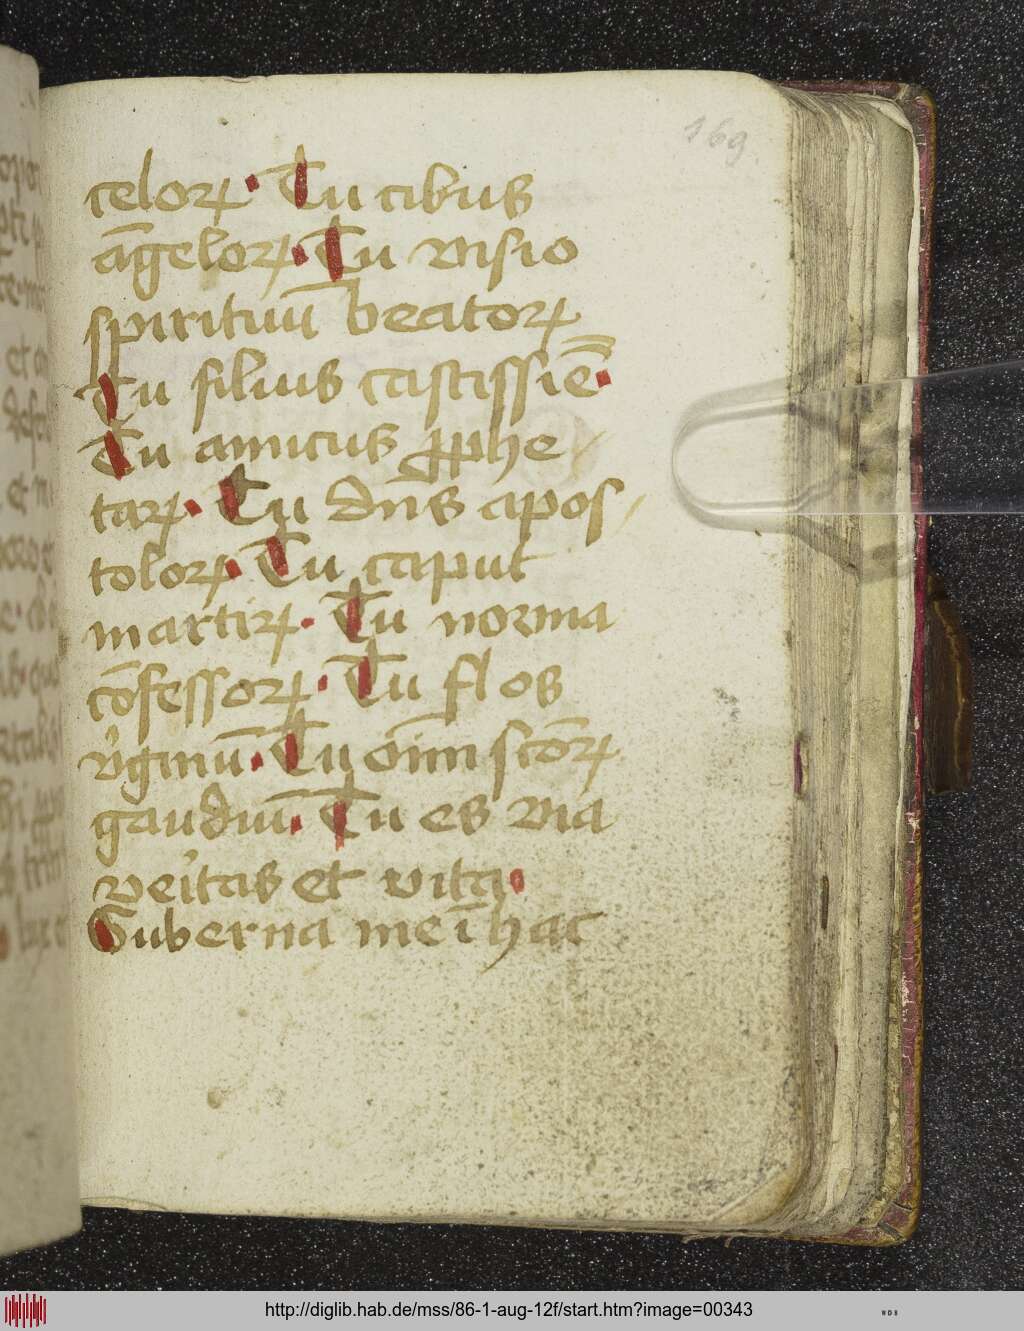 169
celorꝝ · Tu cibus
āgelorꝝ · Tu visio
spirituū beatorꝝ
Tu filius castissiē ·
Tu amicus ꝓphe
tarꝝ · Tu dn̄s apos
tolorꝝ · Tu caput
martirꝝ · Tu norma
cōfessorꝝ · Tu flos
v̓ginū · Tu oīm sctōrꝝ
gaudiū · Tu es via
veı̓tas et vita ·
Guberna me ī hac
http://diglib.hab.de/mss/86-1-aug-12f/start.htm?image=00343